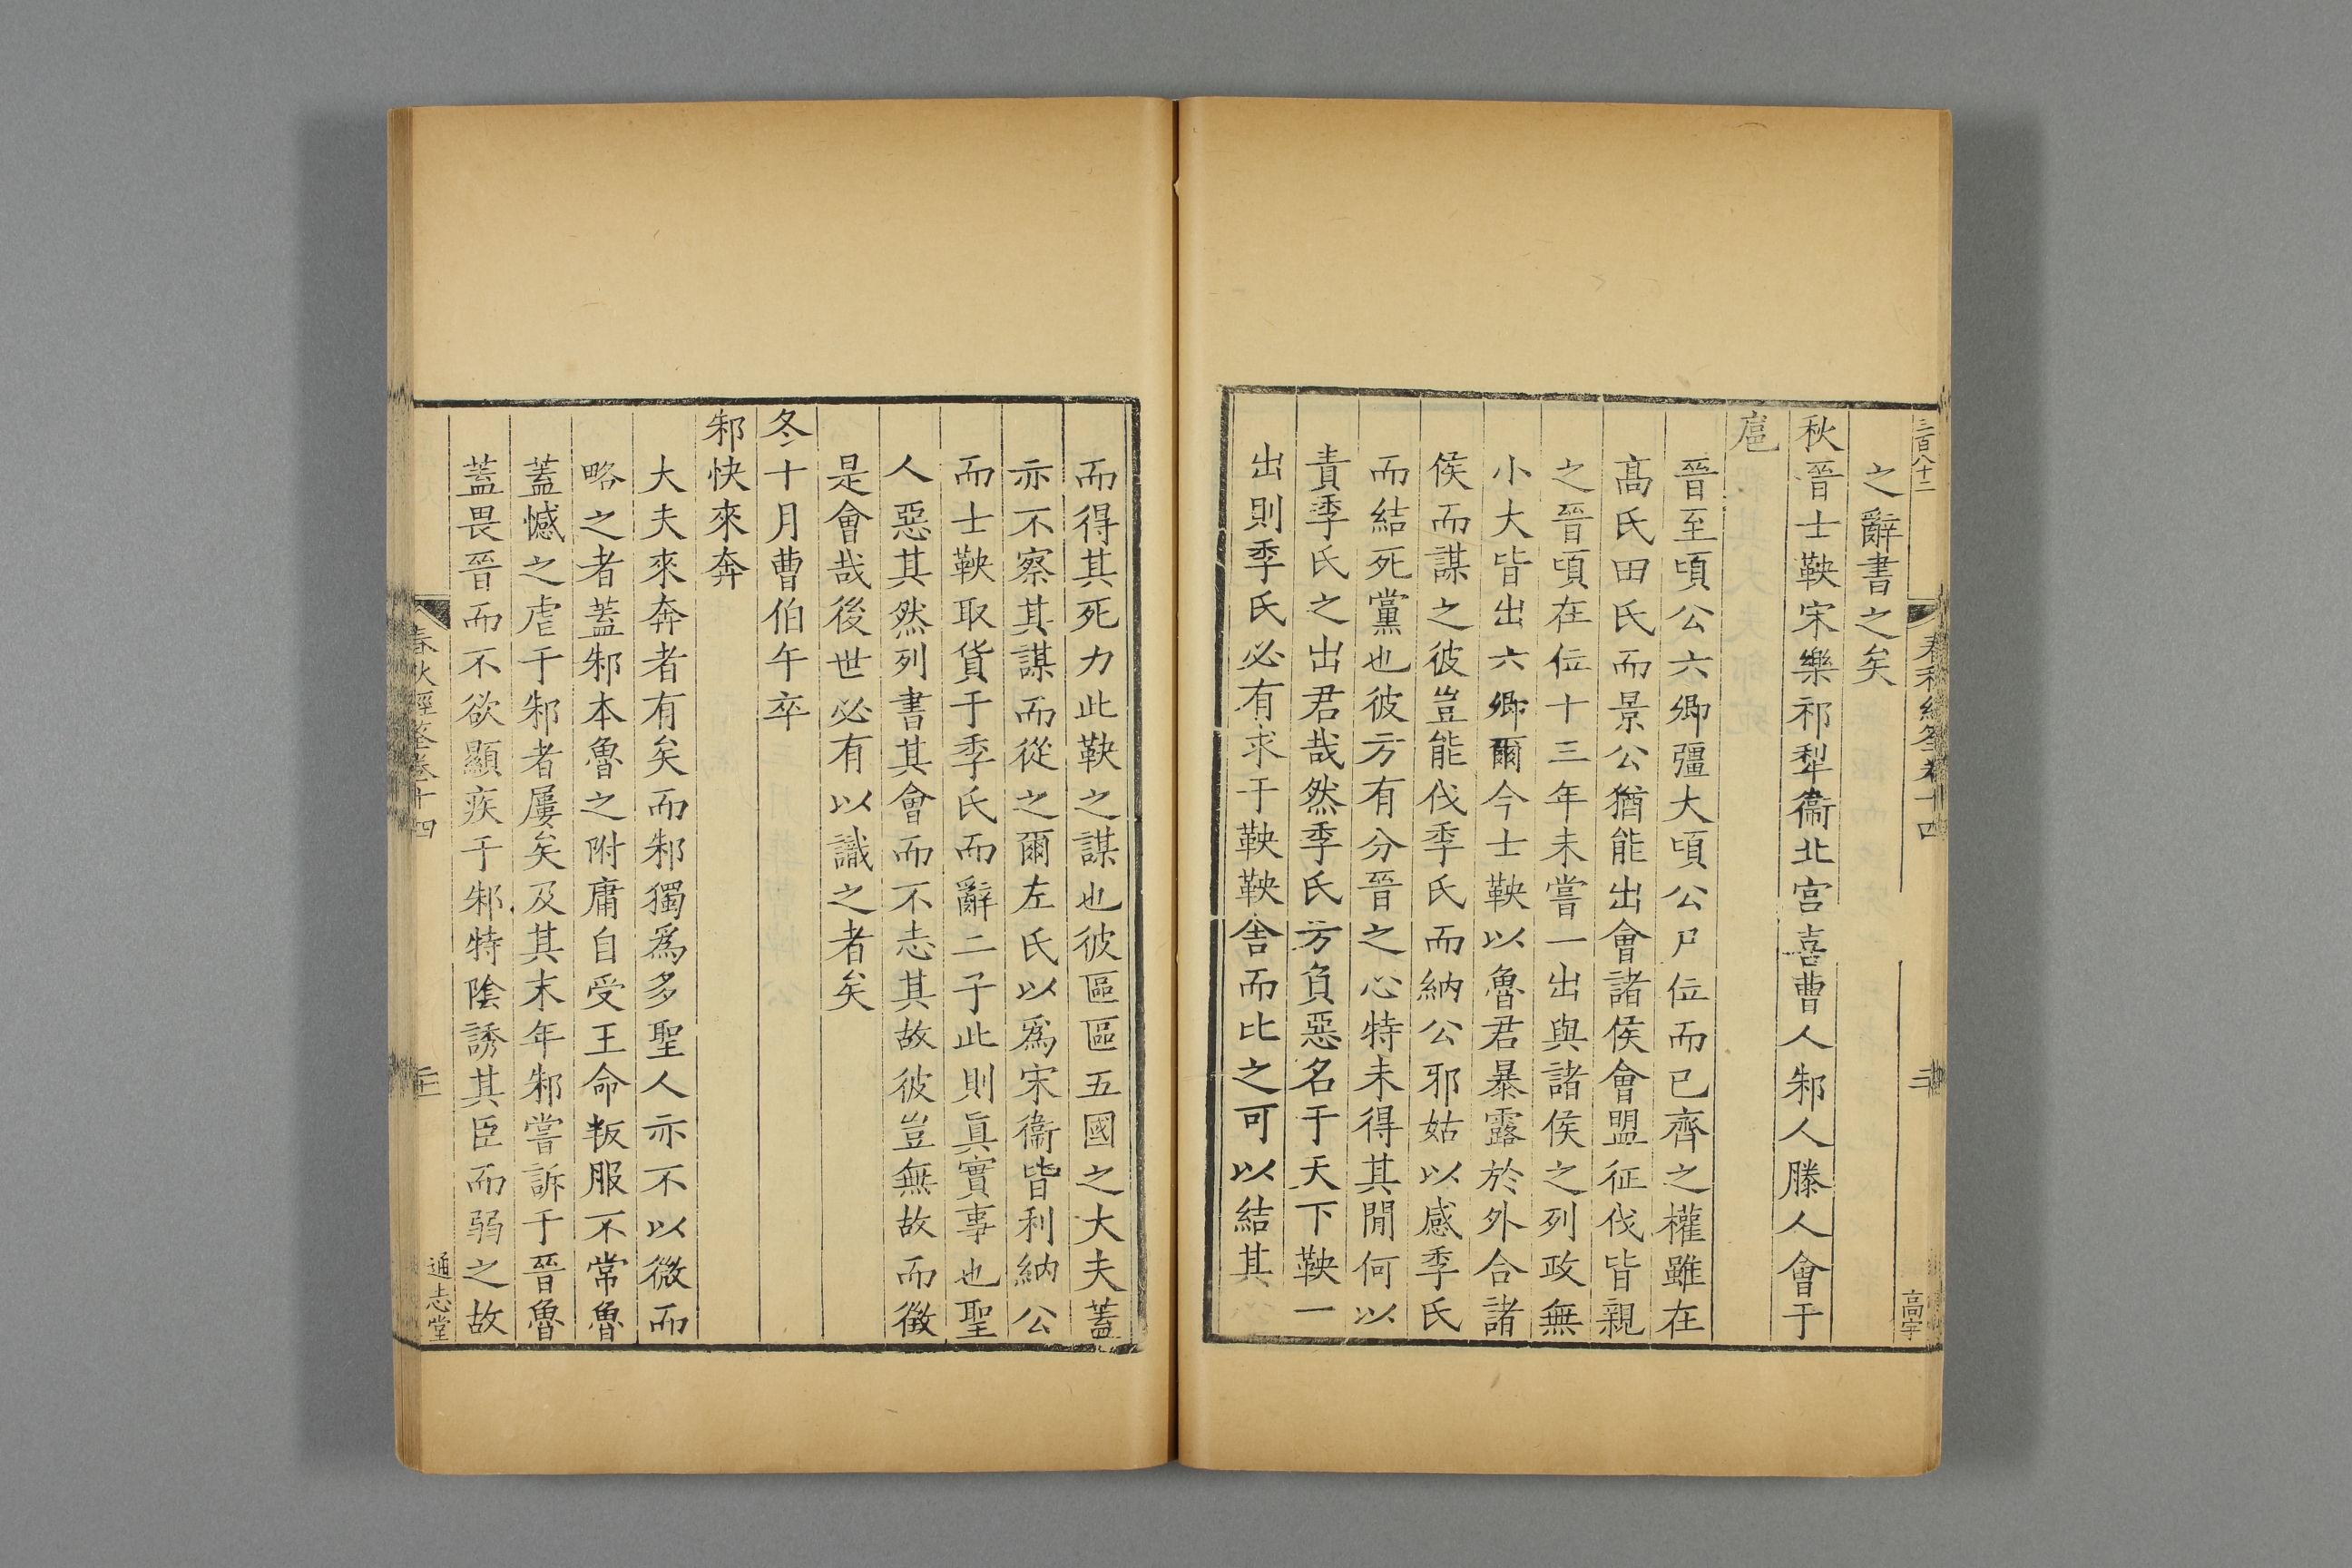 三百八十二
春秋經筌卷十四
高宇
之辭書之矣
秋晉士鞅宋樂祁犁衞北宮喜曹人邾人滕人會于
扈
晉至頃公六卿彊大頃公尸位而已齊之權雖在
高氏田氏而景公猶能出會諸侯會盟征伐皆親
之晉頃在位十三年未嘗一出與諸侯之列政無
小大皆出六卿爾今士鞅以魯君暴露於外合諸
侯而謀之彼豈能伐季氏而納公邪姑以感季氏
而結死黨也彼方有分晉之心特未得其閒何以
責季氏之出君哉然季氏方負惡名于天下鞅一
出則季氏必有求于鞅鞅舍而比之可以結其
而得其死力此鞅之謀也彼區區五國之大夫蓋
亦不察其謀而從之爾左氏以爲宋衞皆利納公
而士鞅取貨于季氏而辭二子此則眞實事也聖
人惡其然列書其會而不志其故彼豈無故而徵
是會哉後世必有以識之者矣
冬十月曹伯午卒
邾快來奔
大夫來奔者有矣而邾獨爲多聖人亦不以微而
略之者蓋邾本魯之附庸自受王命叛服不常魯
蓋憾之虐于邾者屢矣及其末年邾嘗訴于晉魯
蓋畏晉而不欲顯疾于邾特陰誘其臣而弱之故
春秋經筌卷十四
通志堂